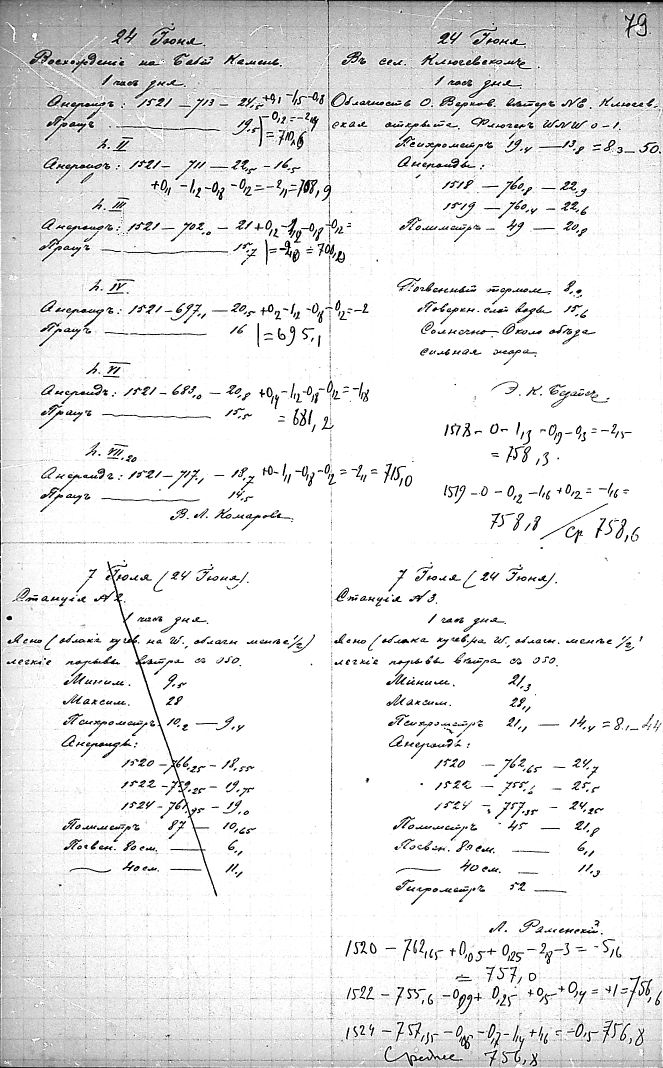 79
24 Іюня.
Восхожденіе на Камень.
1 часъ дня.
Анероидъ: 1521 — 713 — 24,5 +0,1 —1,5 —0,8
Пращъ — 19,5 —0,2 = —2,4
= 710,6
ч. II
Анероидъ: 1521 — 711 — 22,5 — 16,5
+0,1 —1,2 —0,8 —0,2 = —2,1 = 708,9
ч. III
Анероидъ: 1521 — 702,0 — 21 +0,2 —0,8 —0,2 =
Пращъ — 15,7
ч. IV
Анероидъ: 1521 — 697,1 — 20,5 +0,2 —1,2 —0,8 —0,2 = —2
Пращъ — 16 = 695,1
ч. VI
Анероидъ: 1521 — 683,0 — 20,8 +0,4 —1,2 —0,8 —0,2 = —1,8
Пращъ — 15,5 = 681,2
ч. VIII.20
Анероидъ: 1521 — 717,1 — 18,7 +0 —1,1 —0,8 —0,2 = —2,1 = 715,0
Пращъ — 14,5
В. Л. Комаровъ
24 Іюня
Въ сел. Ключевскомъ
1 часъ дня.
Облачность 0. Верхов. вѣтеръ NE. Ключев-
ская открыта. Флюгеръ WNW 0—1.
Психрометръ 19,4 — 13,8 = 8,3 — 50.
Анероиды:
1518 — 760,8 — 22,9
1519 — 760,4 — 22,6
Полиметръ — 49 — 20,8
Почвенный термом. 8,2
Поверхн. слой воды 15,6
Солнечно. Около обѣда
сильная жара.
Э. К.
1518 — 0 — 1,3 — 0,9 — 0,3 = —2,5
= 758,3.
1519 — 0 — 0,2 — 1,6 + 0,2 = —1,6 =
758,8 / Ср 758,6
7 Іюля (24 Іюня).
Станція N 2.
1 часъ дня.
Ясно (облака кучев. на W., облачн. менѣе 1/2)
легкіе порывы вѣтра съ OSO.
Миним. 9,5
Максим. 28
Психрометръ 10,2 — 9,4
Анероиды:
1520 — 766,25 — 18,55
1522 — 759,25 — 19,75
1524 — 761,95 — 19,0
Полиметръ 87 — 10,65
Почвен. 80 см. — 6,1
— 40 см. — 11,1
7 Іюля (24 Іюня).
Станція N 3.
1 часъ дня.
Ясно (облака кучев. на W., облачн. менѣе 1/2)
легкіе порывы вѣтра съ OSO.
Миним. 21,3
Максим. 28,1
Психрометръ 21,1 — 14,4 = 8,1 — 44
Анероидъ:
1520 — 762,65 — 24,7
1522 — 755,6 — 25,5
1524 — 757,35 — 24,25
Полиметръ 45 — 21,8
Почвен. 80 см. — 6,1
— 40 см. — 11,3
Гигрометръ 52 —
Л. Раменскій
1520 — 762,65 + 0,05 + 0,25 — 2,8 — 3 = —5,6
= 757,0
1522 — 755,6 — 0,09 + 0,25 + 0,5 + 0,4 = +1 = 756,6
1524 — 757,35 — 0,06 — 0,7 — 1,4 + 1,6 = —0,5 756,8
Среднее 756,8